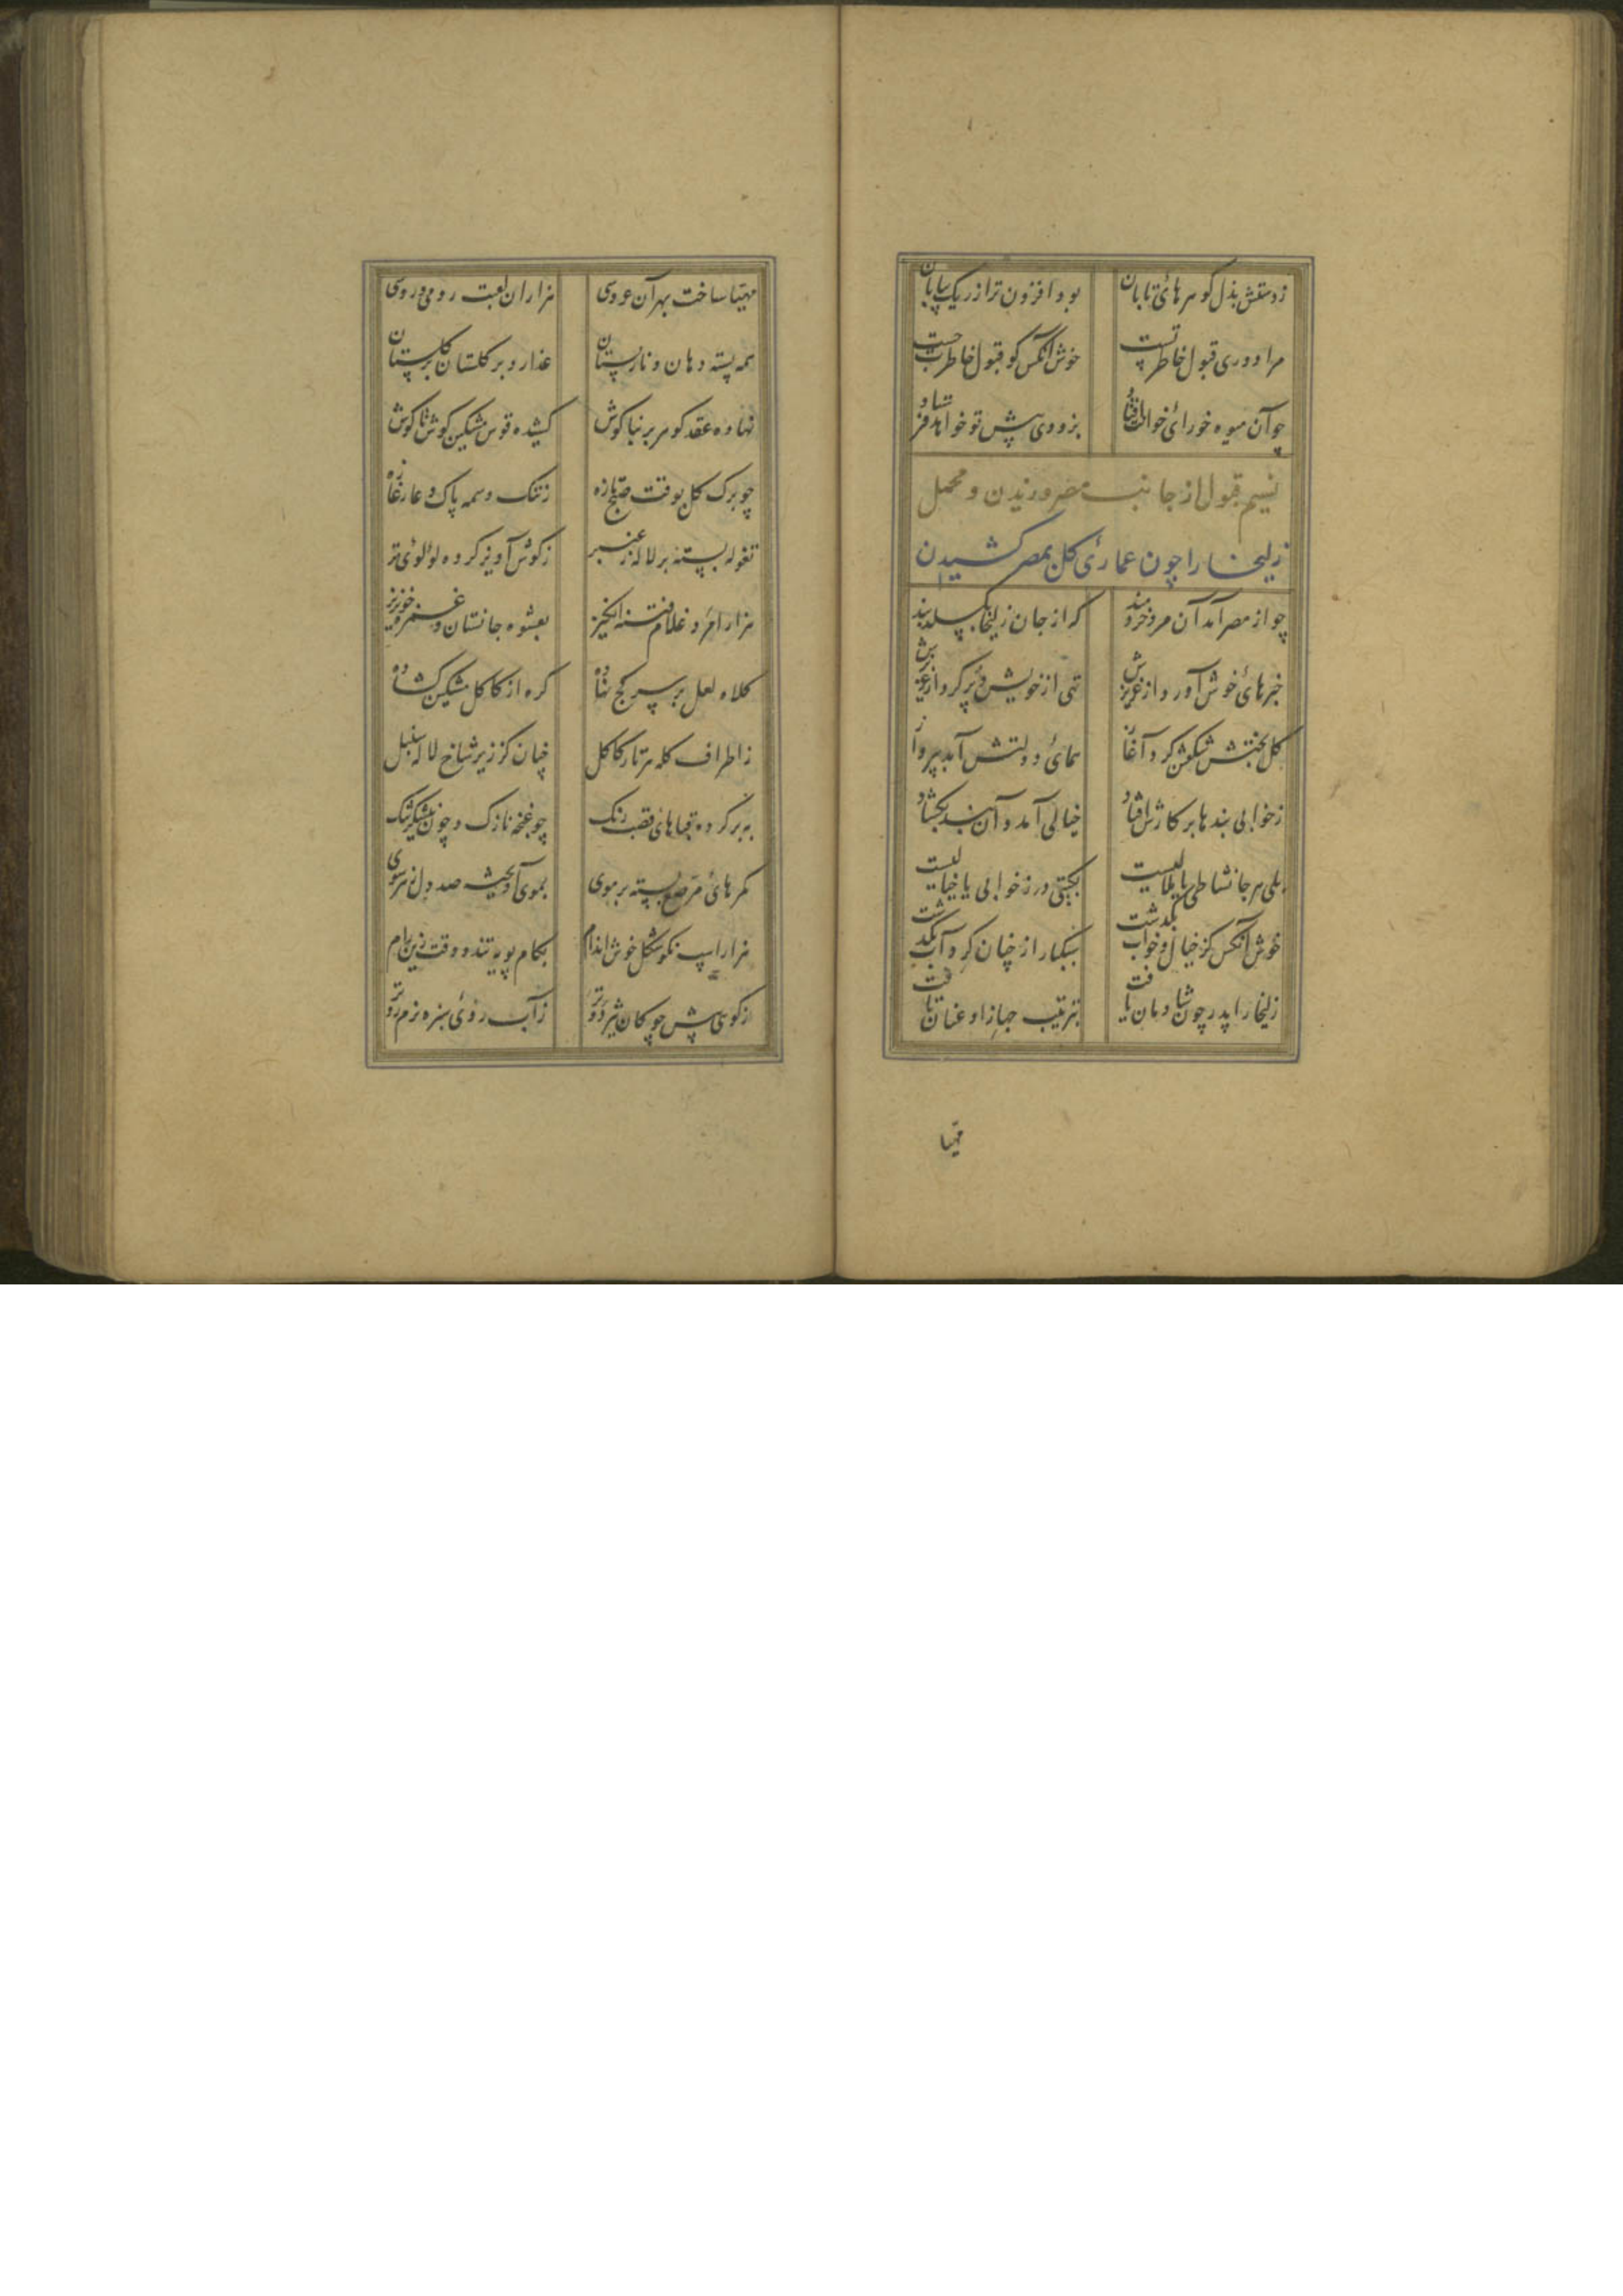 ز دستش بذل گوهرهائ تابان بود افزون تر از ریگ بیابان
مرا دوری قبول خاطر تست خوش آنکس کو قبول خاطرت جست
چو آن میوه خورائ خوانت افتاد بزودی پیش تو خواهد فرستاد
نسیم قبول از جانب مصر وزیدن و محمل
زلیخا را چون عمارئ گل بمصر کشیدن
چو از مصر آمد آن مرد خردمند که از جان زلیخا بگسلد بند
خبرهائ خوش آورد از عزیزش تهی از خویش و پر کرد از عزیزش
گل بختش شکفتن کرد آغاز همائ دولتش آمد بپرواز
ز خوابی بندها بر کارش افتاد خیالی آمد و آن بند بکشاد
بلی هر جا نشاطی یا ملالیست بگیتی در ز خوابی یا خیالیست
خوش آنکس کز خیال و خواب بگذشت سبکبار از چنان گرداب بگذشت
زلیخا را پدر چون شادمان یافت بترتیب جهاز او عنان تافت
مهیا
مهیا ساخت بهر آن عروسی هزاران لعبت رومی و روسی
همه پسته دهان و نار پستان عذار و بر گلستان گلستان
نهاده عقد گوهر بر بناگوش کشیده قوس مشکین گوش تا گوش
چو برگ گل بوقت صبح تازه ز ننگ وسمه پاک و عار غازه
نغوله بسته بر لاله ز عنبر ز گوش آویز کرده لولوئ تر
هزار امرد غلام فتنه انگیز بعشوه جانستان و غمزه خونریز
کلاه لعل بر سر کج نهاده گره از کاکل مشکین گشاده
ز اطراف کله هر تار کاکل چنان کز زیر شاخ لاله سنبل
ببر کرده قباهائ قصب رنگ چو غنچه نازک و چون نیشکر تنگ
کمرهائ مرصع بسته بر موی بموی آویخته صد دل ز هر سوی
هزار اسپ نکوشکل خوش اندام بگام پویه تند و وقت زین رام
ز گوی پیش چوگان تیز دو تر ز آب روئ سبزه نرم رو تر